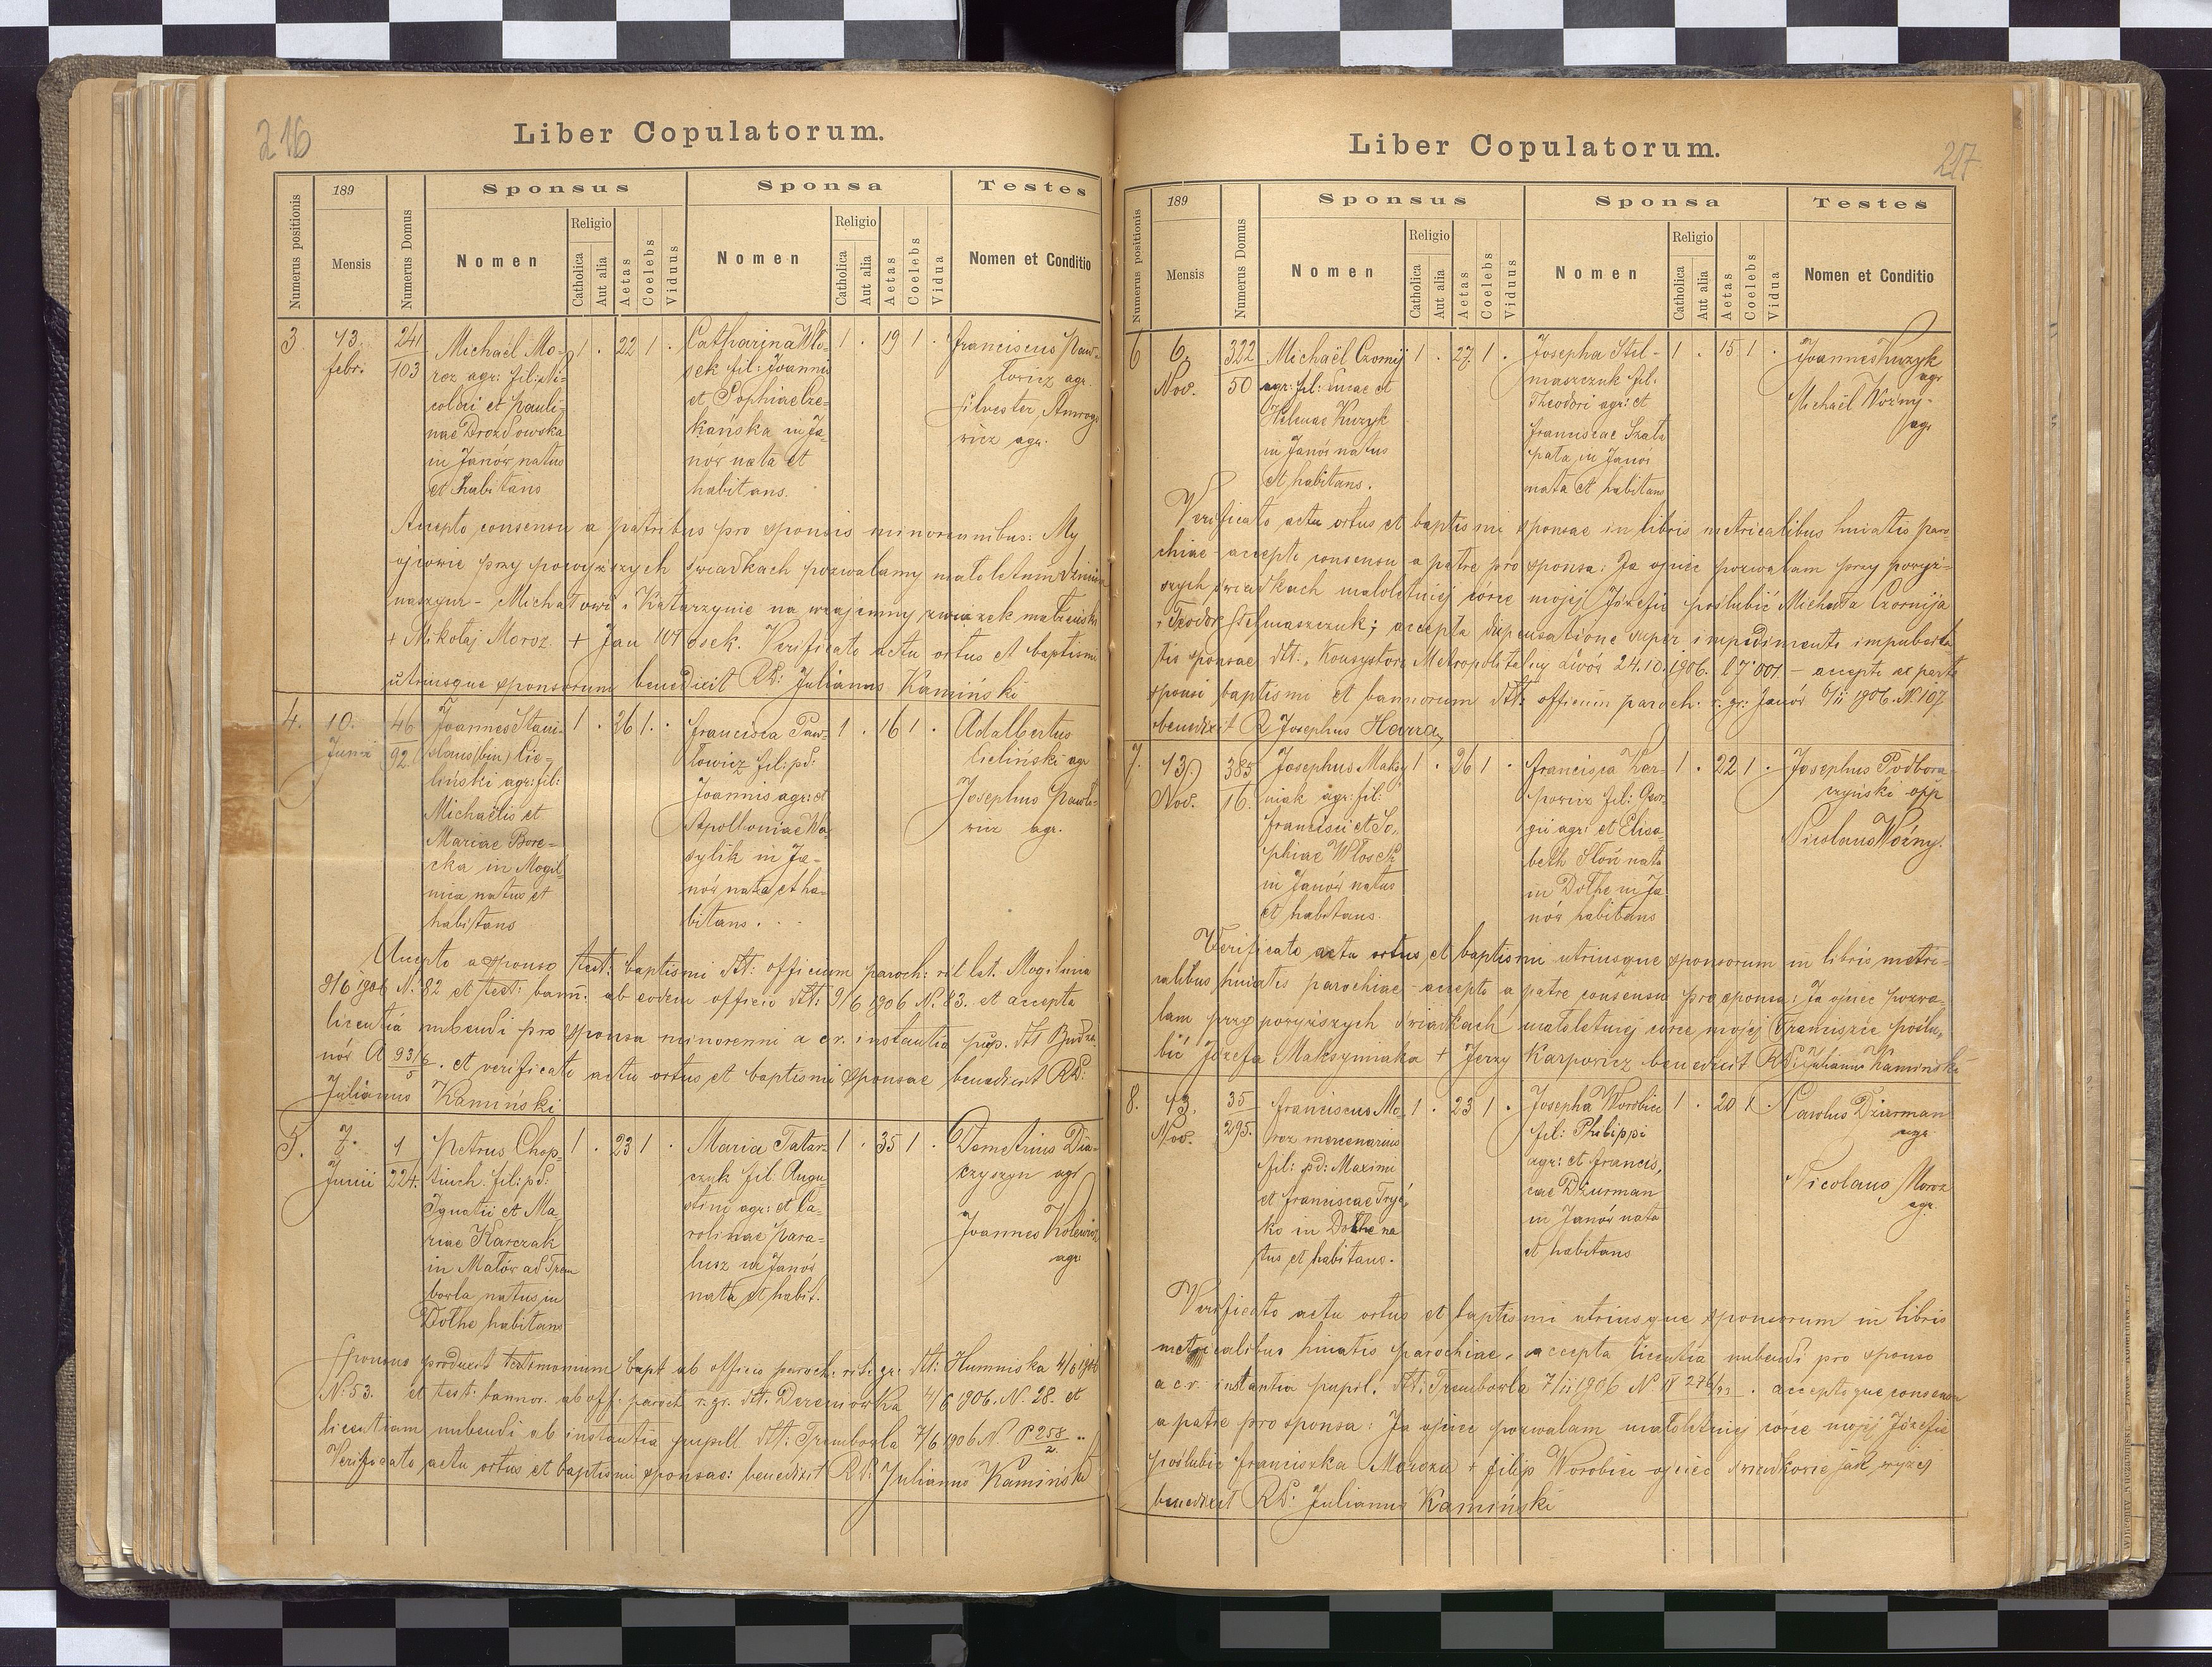 216
Liber Copulatorum.
Numerus positionis
189
Mensis
Numerus Domus
Sponsus
Nomen
Religio
Catholica
Aut alia
Aetas
Coelebs
Viduus
Sponsa
Nomen
Religio
Catholica
Aut alia
Aetas
Coelebs
Vidua
Testes
Nomen et Conditio
3.
13.
febr:
241
103
Michaël Mo-
roz agr: fil: Ni-
colai et Pauli-
nae Drozdowska
in Janów natus
et habitans
1 . 22 1 .
Catharina Wło-
sek fil: Joannis
et Sophiae
in Ja-
nów nata et
habitans.
1 . 19 1 .
Franciscus Paw-
łowicz agr.
Silvester
agr.
Accepto consensu a patribus pro sponsis minorennibus: My
ojcowie przy powyższych świadkach pozwalamy małoletnim dzieciom
naszym - Michałowi i Katarzynie na wzajemny związek małżeński
+ Mikołaj Moroz. + Jan Włosek. Verificato actu ortus et baptismi
utriusque sponsorum benedixit RD: Julianus Kamiński
4.
10.
Junii
46
92.
Joannes Stani-
slaus (bin) Cie-
liński agr: fil:
Michaëlis et
Mariae Bore-
cka in Mogil-
nica natus et
habitans
1 . 26 1 .
Francisca Paw-
łowicz fil: pd:
Joannis agr: et
Apolloniae Wa-
sylik in Ja-
nów nata et ha-
bitans.
1 . 16 1 .
Adalbertus
Cieliński agr
Josephus Pawło-
wicz agr.
Accepto a sponso test: baptismi dtt: officium paroch: rit lat. Mogilnica
9/6 1906 N. 82 et test: bann: ab eodem officio dtt: 9/6 1906 N. 83. et accepta
licentia nubendi pro sponsa minorenni a cr. instantia pup. dtt Budza-
nów A 93/6 5 . et verificato actu ortus et baptismi sponsae benedixit RD:
Julianus Kamiński
5.
7.
Junii
1
224.
Petrus Chop-
tiuch. fil: pd:
Ignatii et Ma-
riae Karczak
in Małów ad Trem
bowla natus in
Dołhe habitans
1 . 23 1 .
Maria Tatar-
czuk fil: Augu-
stini agr: et Ca-
rolinae Para-
lusz in Janów
nata et habit.
1 . 35 1 .
Demetrius Dia-
czyszyn agr
Joannes
agr
Sponsus produxit testimonium bapt ab officio paroch. rit: gr. dtt: Humniska 4/6 1906
N. 53. et test: bannor. ab off. paroch r. gr. dtt. Dereniówka 4/6 1906. N. 28. et
licentiam nubendi ab instantia pupill. dtt: Trembowla 7/6 1906 N. P 258/2.
Verificato actu ortus et baptismi sponsae: benedixit RD: Julianus Kamiński
217
Liber Copulatorum.
Numerus positionis
189
Mensis
Numerus Domus
Sponsus
Nomen
Religio
Catholica
Aut alia
Aetas
Coelebs
Viduus
Sponsa
Nomen
Religio
Catholica
Aut alia
Aetas
Coelebs
Vidua
Testes
Nomen et Conditio
6
6.
Nov.
322
50
Michaël Czornij
agr: fil: Lucae et
Helenae Kuzyk
in Janów natus
et habitans.
1 . 27 1 .
Josepha Stel-
maszczuk fil:
Theodori agr: et
Franciscae Szała
pata, in Janów
nata et habitans
1 . 15 1 .
Joannes Kuzyk
agr
Michaël Woźny-
agr
Verificato actu ortus et baptismi sponsae in libris metricalibus huiatis paro-
chiae - accepto consensu a patre pro sponsa: Ja ojciec pozwalam przy powyż-
szych świadkach małoletniej córce mojej Józefie poślubić Michała Czornija
+ Teodor Stelmaszczuk; accepta dispensatione super impedimento impuberta-
tis sponsae dtt. Konsystorz Metropolitalny Lwów 24.10.1906. l 7001 - accepto ex parte
sponsi baptismi et bannorum dtt: officium paroch: r. gr: Janów 6/11 1906. N. 107
benedixit R Josephus
7.
13.
Nov.
385
16.
Josephus Maksy-
niak agr: fil:
Francisci et So-
phiae Włosek
in Janów natus
et habitans.
1 . 26 1 .
Francisca Kar-
powicz fil: Geor-
gii agr: et Elisa-
beth Słoń nata
in Dołhe in Ja-
nów habitans
1 . 22 1 .
Josephus Podhora-
czyński opp
Nicolaus Woźny.
Verificato actu ortus et baptismi utriusque sponsorum in libris metri-
calibus huiatis parochiae - accepto a patre consensu pro sponsa: Ja ojciec pozwa-
lam przy powyższych świadkach małoletniej córce mojej Franciszce poślu-
bić Józefa Maksymiaka + Jerzy Karpowicz benedixit RD: Julianus Kamiński
8.
13.
Nov.
35
295.
Franciscus Mo-
roz mercenarius
fil: pd: Maximi
et Franciscae Tryć-
ko in Dołhe na
tus et habitans.
1 . 23 1 .
Josepha Worobiec
fil: Philippi
agr: et Francis-
cae Dziurman
in Janów nata
et habitans
1 . 20 1 .
Carolus Dziurman
agr
Nicolaus Moroz
agr.
Verificato actu ortus et baptismi utriusque sponsorum in libris
metricalibus huiatis parochiae, accepta licentia nubendi pro sponso
a cr. instantia pupil. dtt: Trembowla 7/11 1906 N. IV 276/93 . acceptoque consensu
a patre pro sponsa: Ja ojciec pozwalam małoletniej córce mojej Józefie
poślubić Franciszka Moroza + Filip Worobiec - ojciec świadkowie jak wyżej
benedixit RD: Julianus Kamiński